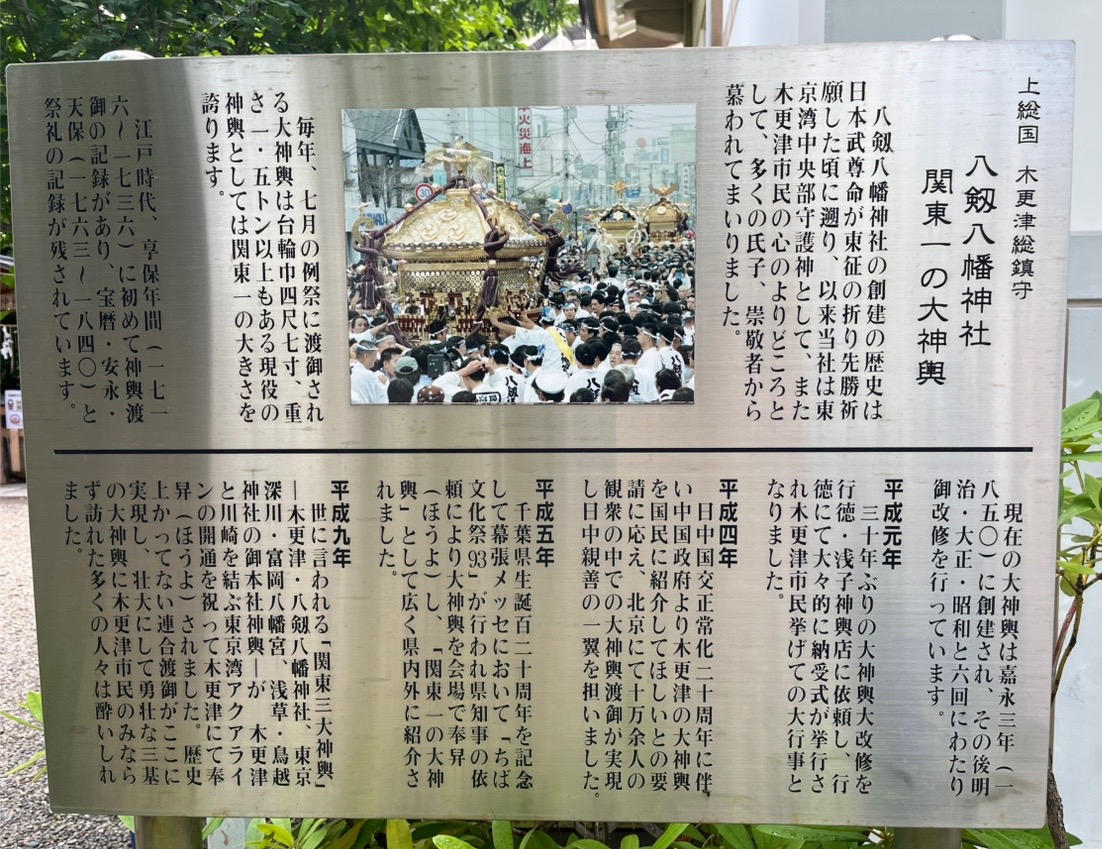 上総国 木更津総鎮守
八剱八幡神社
関東一の大神輿
八剱八幡神社の創建の歴史は
日本武尊命が東征の折り先勝祈
願した頃に遡り、以来当社は東
京湾中央部守護神として、また
木更津市民の心のよりどころと
して、多くの氏子、崇敬者から
慕われてまいりました。
火災海上
毎年、七月の例祭に渡御され
る大神輿は台輪巾四尺七寸、重
さ一・五トン以上もある現役の
神輿としては関東一の大きさを
誇ります。
江戸時代、享保年間(一七一
六~一七三六)に初めて神輿渡
御の記録があり、宝暦・安永・
天保(一七六三~一八四〇)と
祭礼の記録が残されています。
現在の大神輿は嘉永三年(一
八五〇)に創建され、その後明
治・大正・昭和と六回にわたり
御改修を行っています。
平成元年
三十年ぶりの大神輿大改修を
行徳・浅子神輿店に依頼し、行
徳にて大々的に納受式が挙行さ
れ木更津市民挙げての大行事と
なりました。
平成四年
日中国交正常化二十周年に伴
い中国政府より木更津の大神輿
を国民に紹介してほしいとの要
請に応え、北京にて十万余人の
観衆の中での大神輿渡御が実現
し日中親善の一翼を担いました。
平成五年
千葉県生誕百二十周年を記念
して幕張メッセにおいて「ちば
文化祭93」が行われ県知事の依
頼により大神輿を会場で奉昇
(ほうよ)し、「関東一の大神
輿」として広く県内外に紹介さ
れました。
平成九年
世に言われる「関東三大神輿」
―木更津・八剱八幡神社、東京
深川・富岡八幡宮、浅草・鳥越
神社の御本社神輿―が 木更津
と川崎を結ぶ東京湾アクアライ
ンの開通を祝って木更津にて奉
昇(ほうよ)されました。歴史
上かつてない連合渡御がここに
実現し、壮大にして勇壮な三基
の大神輿に木更津市民のみなら
ず訪れた多くの人々は酔いしれ
ました。